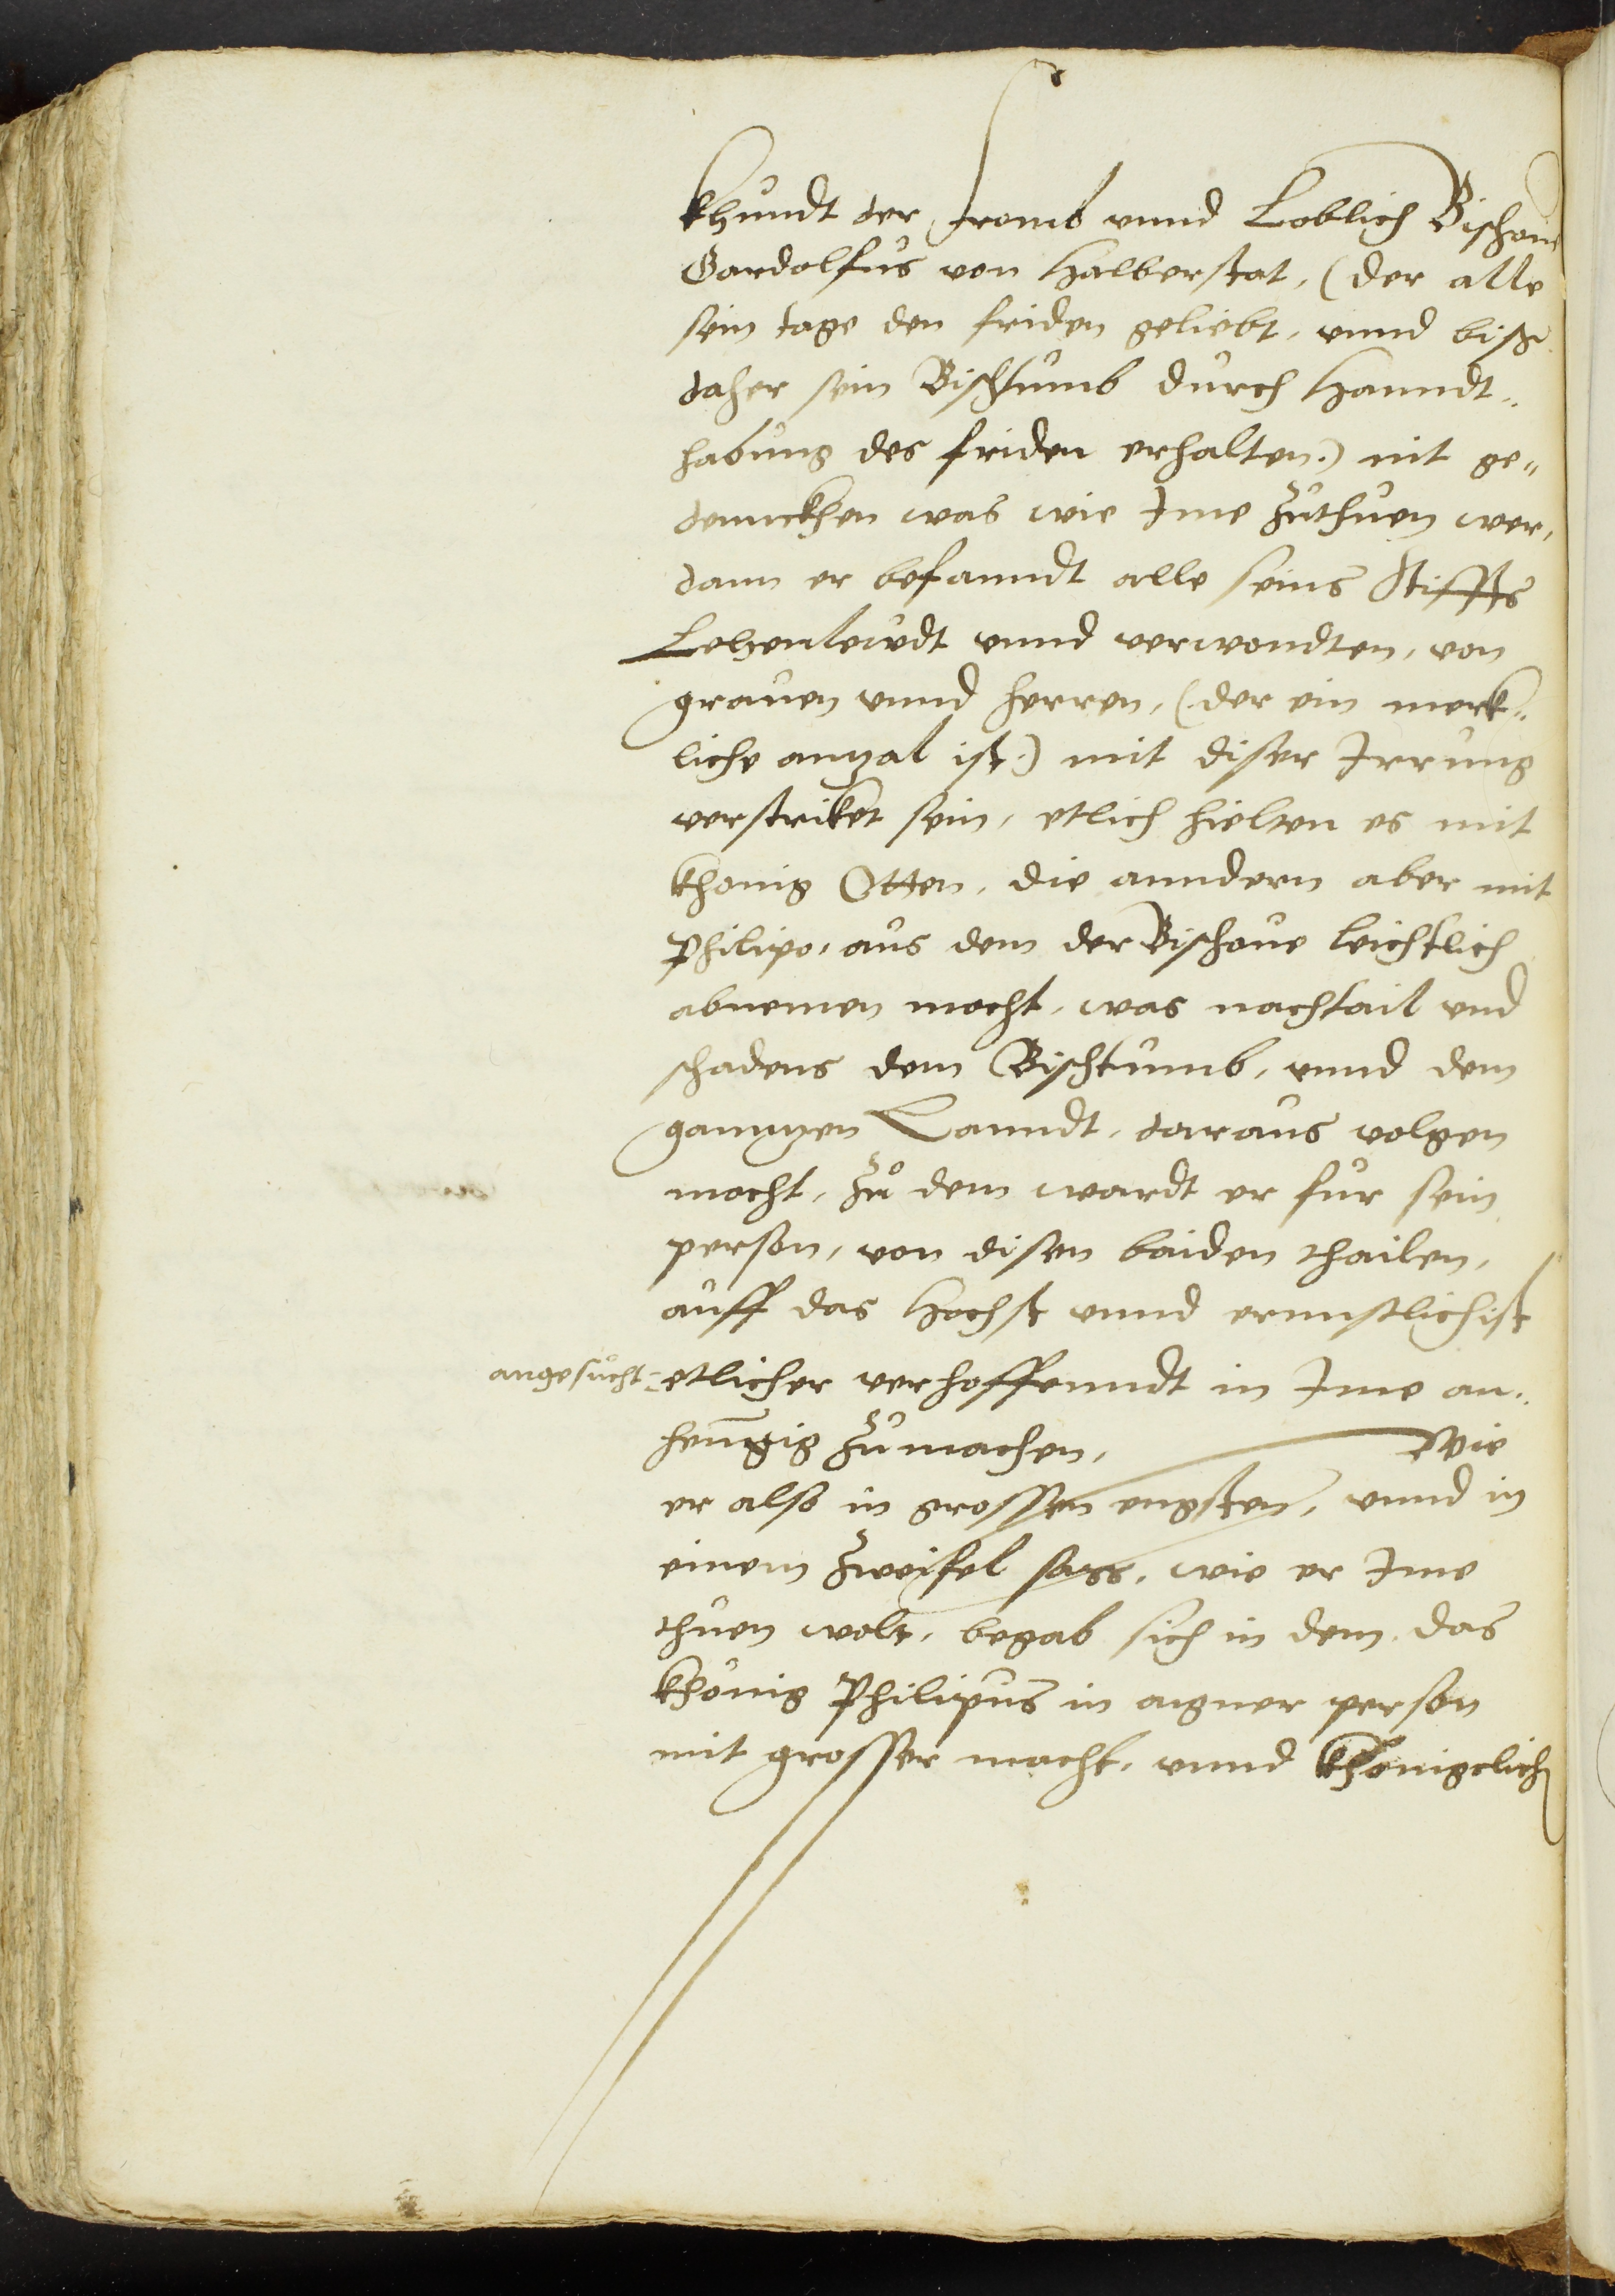 khundt der fromb vnnd Loblich Bischoue
Gardolfus von Halberstat, (der alle
sein tage den friden geliebt, vnnd biß
daher sein Bisthumb durch Hanndt„
habung des friden erhalten.) nit ge„
dennckhen was wie Ime zuthuen wer,
dann er befanndt alle seins Stiffts
Lehenlewdt vnnd verwondten, von
grauen vnnd herren, (der ein merk„
liche anzal ist.) mit diser Irrung
verstriket sein, etlich hielten es mit
khonig Otten, die anndern aber mit
Philipo, aus dem der Bischoue leichtlich
abnemen mocht, was nachtail vnd
schadens dem Bischtumb, vnnd dem
ganntzen Lanndt, daraus volgen
mocht, zů dem wardt er fur sein
person, von disen baiden thailen,
auff das Hochst vnnd ernnstlichist
angesucht etlicher verhoffenndt in Ime an„
henngig zumachen, Wie
er also in grossen engsten, vnnd in
einem Zweifel sass, wie er Ime
thuen wolt, begab sich in dem das
khönig Philipus in aigner person
mit grosser macht, vnnd khönigclich